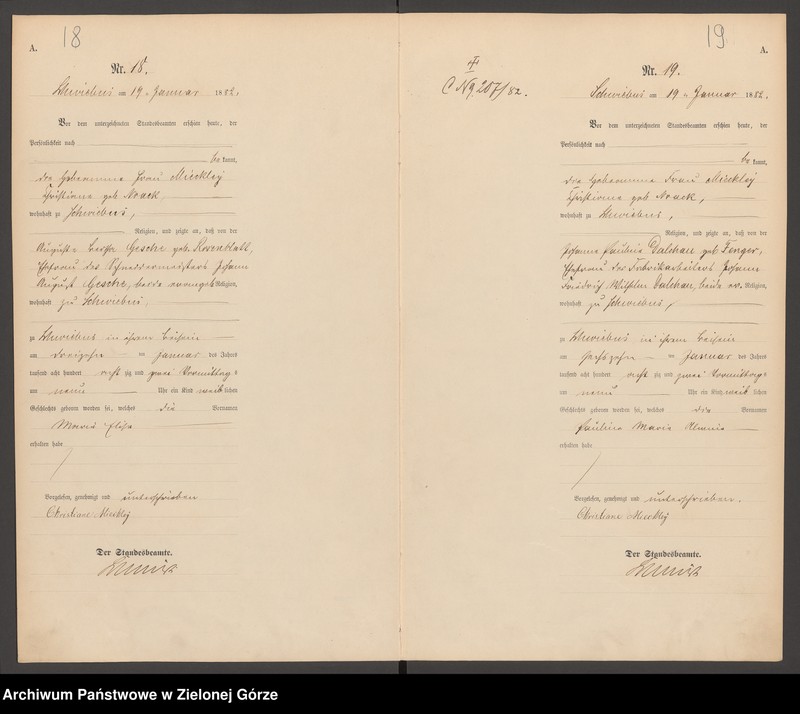 18
A.
Nr. 18.
Schwiebus am 19 ten Januar 1882.
Vor dem unterzeichneten Standesbeamten erschien heute, der
Persönlichkeit nach
be kannt,
die Hebeamme Frau Mieckley
Christiane geb Noack,
wohnhaft zu Schwiebus,
Religion, und zeigte an, daß von der
Auguste Bertha Geschke geb. Rosenblatt,
Ehefrau des Schneidermeisters Johann
August Geschke, beide evangel. Religion,
wohnhaft zu Schwiebus,
zu Schwiebus in ihrem Beisein
am dreizehn ten Januar des Jahres
tausend acht hundert acht zig und zwei Vormittags
um neun Uhr ein Kind weib lichen
Geschlechts geboren worden sei, welches die Vornamen
Maria Elisa
erhalten habe
Vorgelesen, genehmigt und unterschrieben
Christiane Mieckley
Der Standesbeamte.
19
A.
C № 9. 207/82.
Nr. 19.
Schwiebus am 19 ten Januar 1882.
Vor dem unterzeichneten Standesbeamten erschien heute, der
Persönlichkeit nach
be kannt,
die Hebeamme Frau Mieckley
Christiane geb Noack,
wohnhaft zu Schwiebus,
Religion, und zeigte an, daß von der
Johanne Pauline Dalchau geb. Fenger,
Ehefrau des Fabrikarbeiters Johann
Friedrich Wilhelm Dalchau, beide ev. Religion,
wohnhaft zu Schwiebus,
zu Schwiebus in ihrem Beisein
am sechszehn ten Januar des Jahres
tausend acht hundert acht zig und zwei Vormittags
um neun Uhr ein Kind weib lichen
Geschlechts geboren worden sei, welches die Vornamen
Pauline Maria
erhalten habe
Vorgelesen, genehmigt und unterschrieben.
Christiane Mieckley
Der Standesbeamte.
Archiwum Państwowe w Zielonej Górze